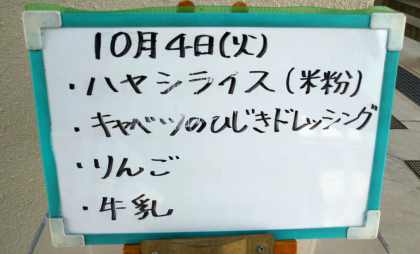 10月4日(火)
・ハヤシライス(米粉)
・キャベツのひじきドレッシング
・りんご
・牛乳